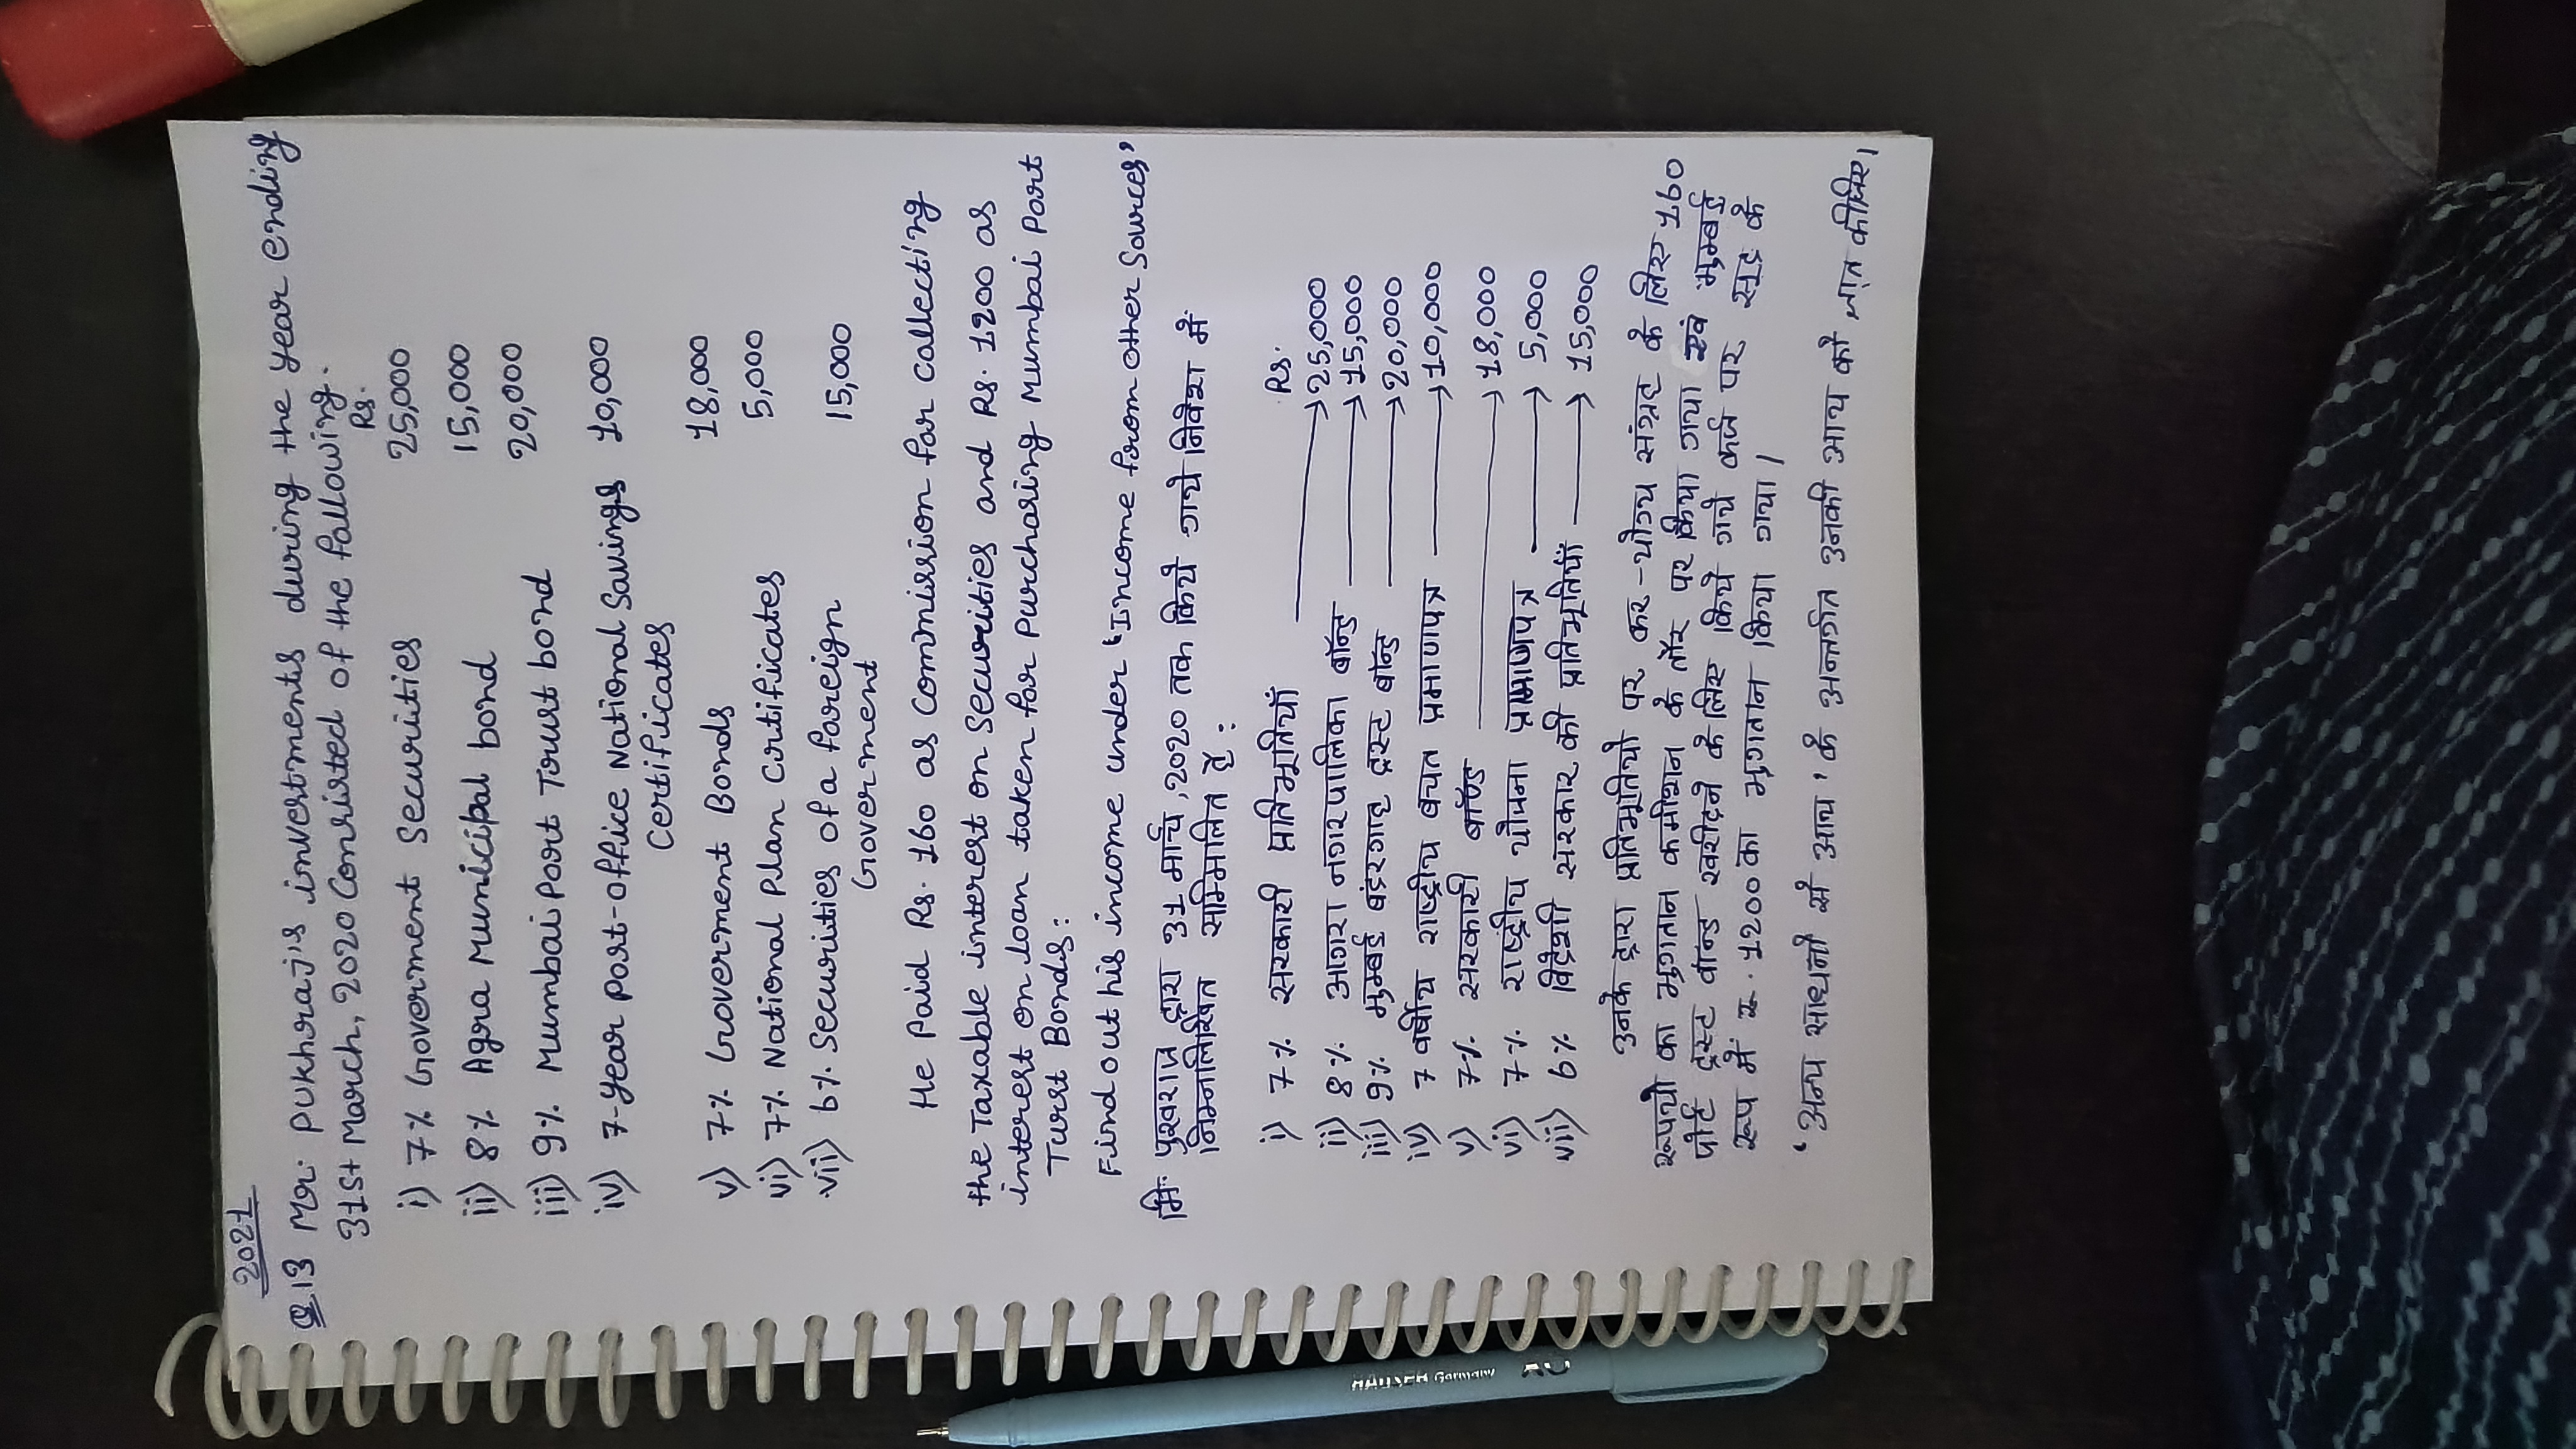 2021
Q.13 Mr. Pukhraj's investments during the year ending
31st March, 2020 Consisted of the fallowing.
Rs.
i) 7% Goverment Securities 25,000
ii) 8% Agra Municipal bond 15,000
iii) 9% Mumbai Port Trust bond 20,000
iv) 7-year post-office National Savings 10,000
Certificates
v) 7% Goverment Bonds 18,000
vi) 7% National Plan Certificates 5,000
vii) 6% Securities of a foreign
Goverment 15,000
He Paid Rs. 160 as commission for collecting
the Taxable interest on securities and Rs. 1200 as
interest on loan taken for purchasing Mumbai Port
Turst Bonds:
Find out his income under 'Income from other Sources'
मि. पुखराज द्वारा 31 मार्च, 2020 तक किये गये निवेश में
निम्नलिखित सम्मिलित है :
Rs.
i) 7% सरकारी प्रतिभूतियाँ → 25,000
ii) 8% आगरा नगरपालिका बॉन्ड → 15,000
iii) 9% मुम्बई बंदरगाह ट्रस्ट बॉन्ड → 20,000
iv) 7 वर्षीय राष्ट्रीय बचत प्रमाणपत्र → 10,000
v) 7% सरकारी बॉण्ड → 18,000
vi) 7% राष्ट्रीय योजना प्रमाणपत्र → 5,000
vii) 6% विदेशी सरकार की प्रतिभूतियाँ → 15,000
उनके द्वारा प्रतिभूतियो पर कर-योग्य संग्रह के लिए 160
रूपयो का भुगतान कमीशन के तौर पर किया गया एवं मुम्बई
पोर्ट ट्रस्ट बॉन्ड खरीदने के लिए किये गये कर्ज पर सूद के
रूप में रू. 1200 का भुगतान किया गया।
'अन्य साधनो से आय' के अन्तर्गत उनकी आय को ज्ञात कीजिए।